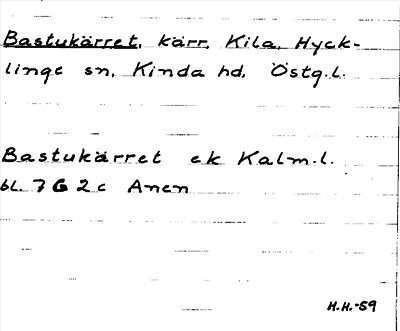 Bastukärret, kärr, Kila, Hyck-
linge sn, Kinda hd, Östg.l.
Bastukärret ek Kalm.l.
bl. 7 G 2 c Anen
H.H.-59